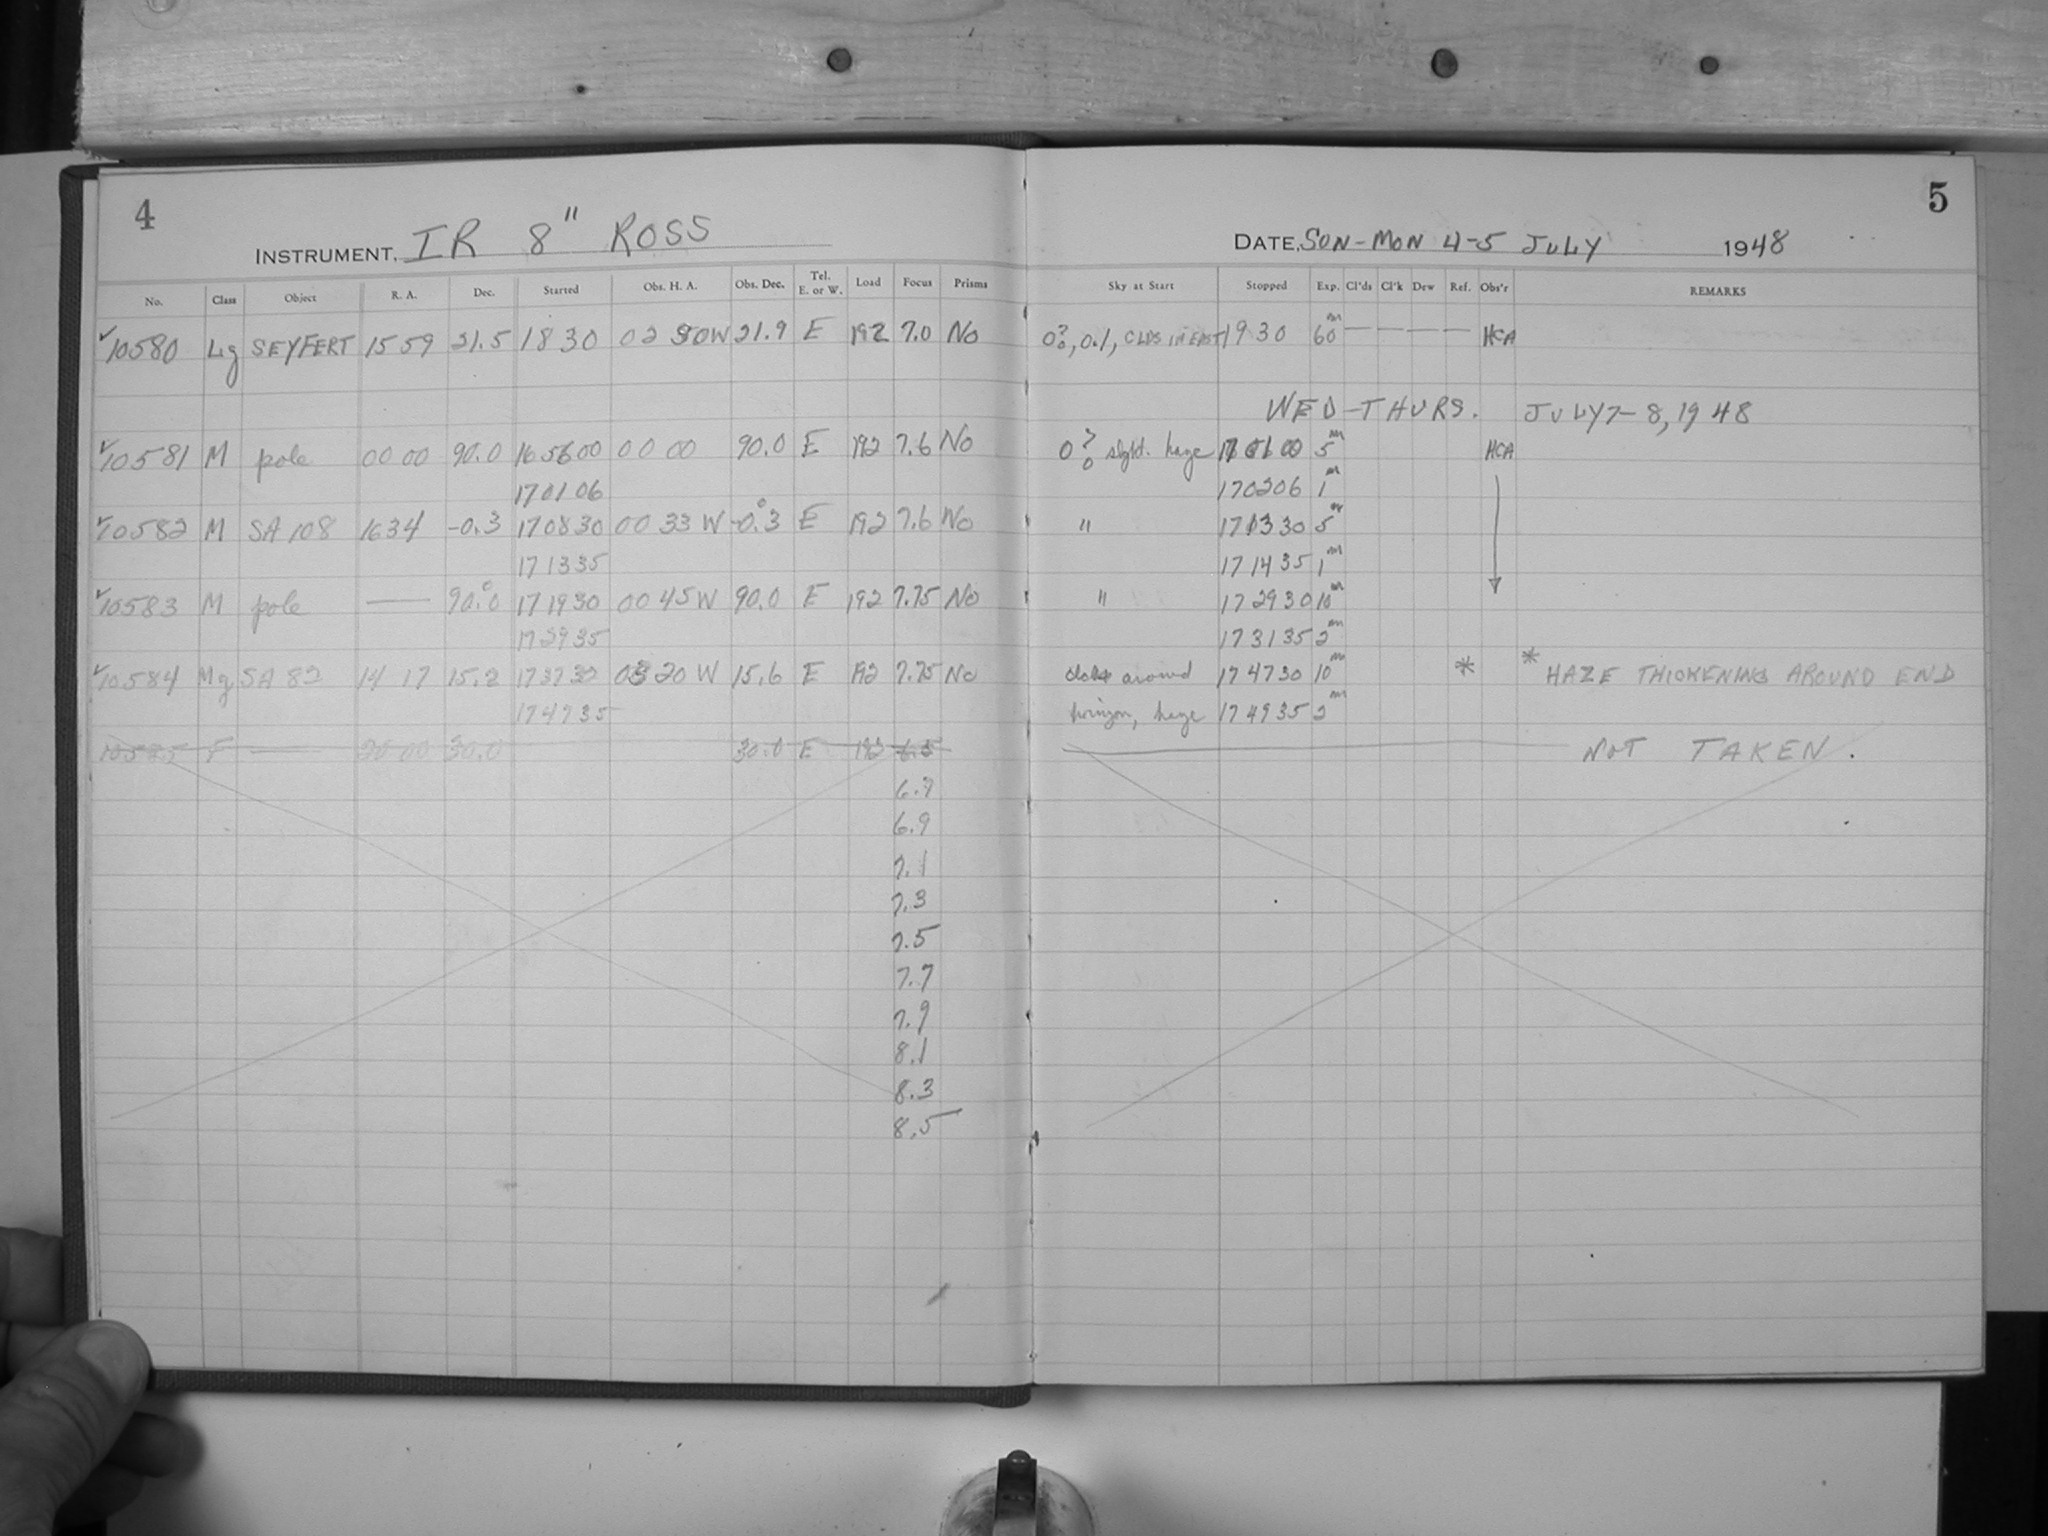 4
5
INSTRUMENT, IR 8" ROSS
DATE, SUN-MON 4-5 JULY 1948
No. Class Object R. A. Dec. Started Obs. H. A. Obs. Dec. Tel. E. or W. Load Focus Prisms Sky at Start Stopped Exp. Cl'ds Cl'k Dew Ref. Obs'r REMARKS
✓10580 Lg SEYFERT 15 59 21.5 18 30 02 50W 21.9 E 192 7.0 No 0?, 0.1, CLDS IN EAST 19 30 60m — — — — HCA
WED-THURS. JULY 7-8, 1948
✓10581 M pole 00 00 90.0 16 56 00 00 00 90.0 E 192 7.6 No slght. haze 17 01 00 5m HCA
17 01 06 17 02 06 1m
✓10582 M SA 108 16 34 -0.3 17 08 30 00 33 W -0.°3 E 192 7.6 No " 17 13 30 5m
17 13 35 17 14 35 1m
✓10583 M pole — 90.°0 17 19 30 00 45 W 90.0 E 192 7.75 No " 17 29 30 10m
17 29 35 17 31 35 2m
✓10584 Mg SA 82 14 17 15.2 17 37 30 03 20 W 15.6 E 192 7.75 No around 17 47 30 10m * * HAZE THICKENING AROUND END
17 47 35 horizon, haze 17 49 35 2m
10585 F — 20 00 30.0 30.0 E 192 6.5 NOT TAKEN.
6.7
6.9
7.1
7.3
7.5
7.7
7.9
8.1
8.3
8.5